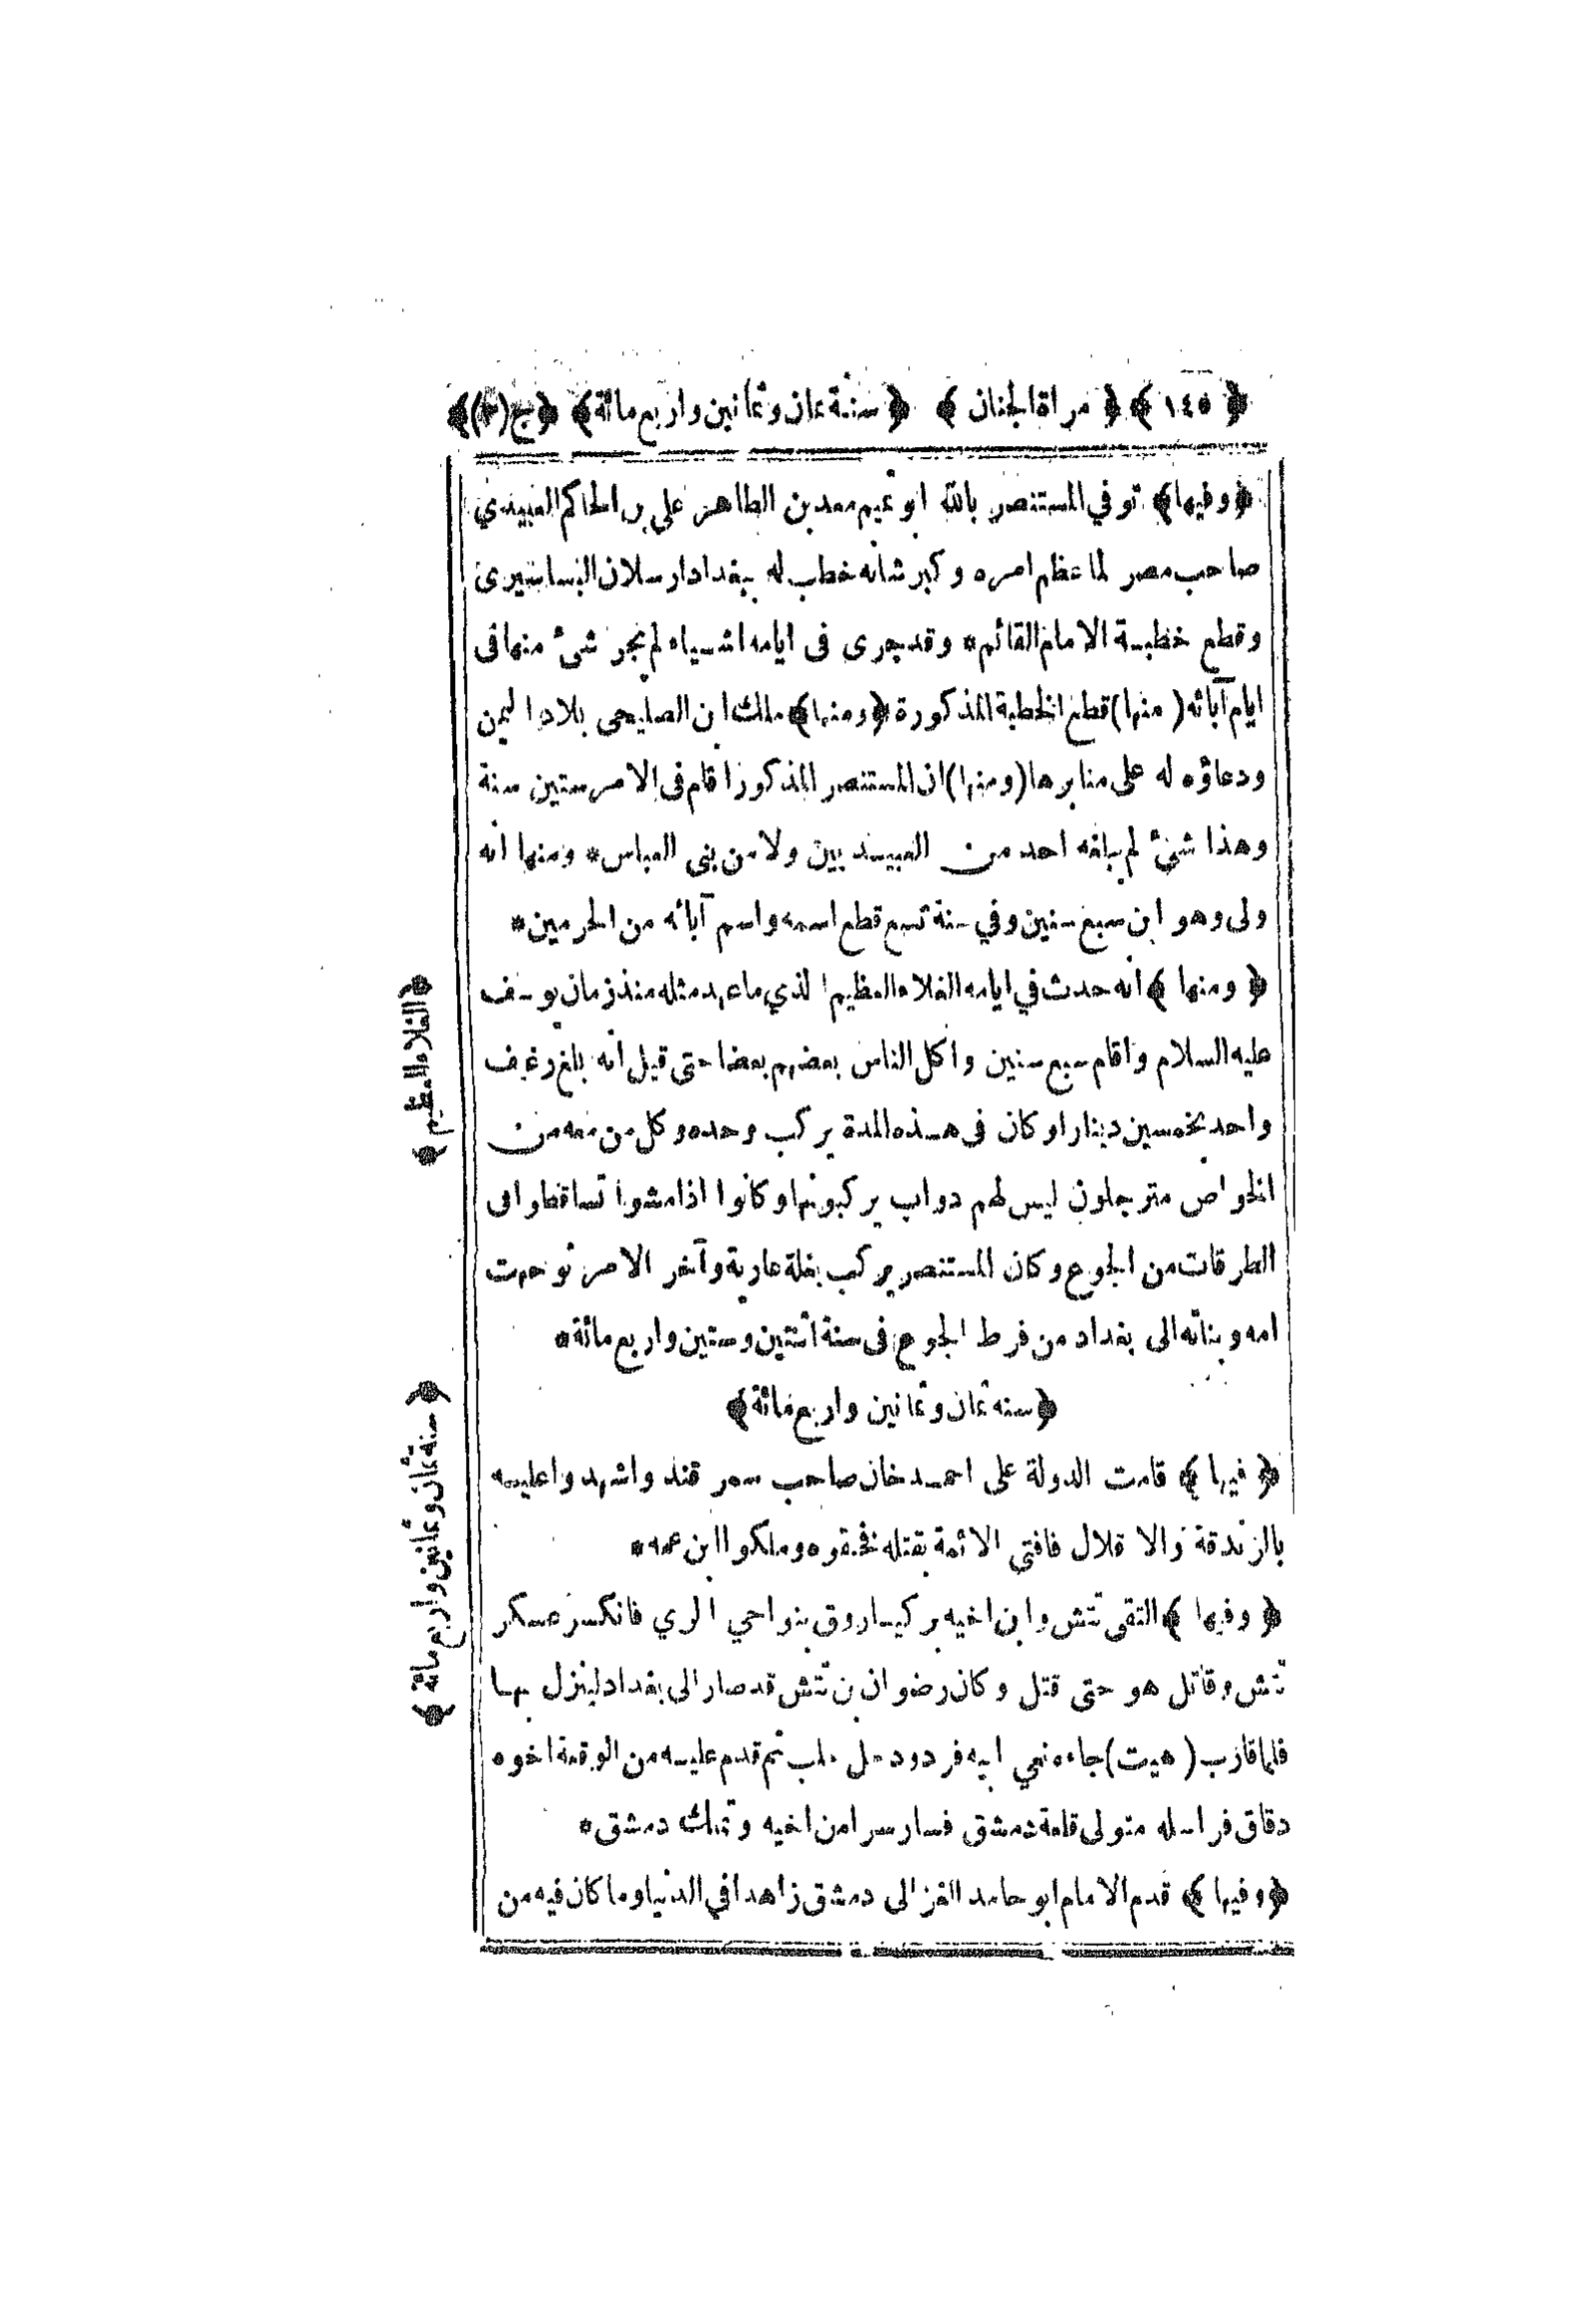 ﴿ ١٤٥ ﴾ ﴿ مراة الجنان ﴾ ﴿ سنة ثمان وثمانين واربع مائة ﴾ ﴿ ج (٣) ﴾
﴿ وفيها ﴾ توفي المستنصر بالله ابو تميم معد بن الظاهر علي بن الحاكم العبيدي
صاحب مصر لما عظم امره وكبر شانه خطب له ببغداد ارسلان البساسيرى
وقطع خطبة الامام القائم * وقد جرى فى ايامه اشياء لم يجر شئ منها فى
ايام آبائه ( منها ) قطع الخطبة المذكورة ﴿ ومنها ﴾ ملك ابن الصليحى بلاد اليمن
ودعاؤه له على منابرها ( ومنها ) ان المستنصر المذكور اقام فى الامر ستين سنة
وهذا شئ لم يبلغه احد من العبيديين ولا من بنى العباس * ومنها انه
ولى وهو ابن سبع سنين وفي سنة تسع قطع اسمه واسم آبائه من الحرمين *
﴿ ومنها ﴾ انه حدث في ايامه الغلاء العظيم الذي ما عهد مثله منذ زمان يوسف
عليه السلام واقام سبع سنين واكل الناس بعضهم بعضا حتى قيل انه بلغ رغيف
واحد بخمسين دينارا وكان فى هذه المدة يركب وحده وكل من معه من
الخواص مترجلون ليس لهم دواب يركبونها وكانوا اذا مشوا تساقطوا فى
الطرقات من الجوع وكان المستنصر يركب بغلة عارية وآخر الامر توجهت
امه وبناته الى بغداد من فرط الجوع فى سنة اثنتين وستين واربع مائة *
﴿ سنه ثمان وثمانين واربع مائة ﴾
﴿ فيها ﴾ قامت الدولة على احمد خان صاحب سمر قند واشهدوا عليه
بالزندقة والا قلال فافتى الائمة بقتله فخنقوه وملكوا ابن عمه *
﴿ وفيها ﴾ التقى تتش وابن اخيه بركياروق بنواحي الري فانكسر عسكر
تتش وقاتل هو حتى قتل وكان رضوان بن تتش قد صار الى بغداد لينزل بها
فلما قارب ( هيت ) جاءه نعي ابيه فرد ودخل حلب ثم قدم عليه من الوقعة اخوه
دقاق فراسله متولى قلعة دمشق فسار سرا من اخيه وتملك دمشق *
﴿ وفيها ﴾ قدم الامام ابو حامد الغزالى دمشق زاهدا في الدنيا وما كان فيه من
﴿ الغلاء العظيم ﴾
﴿ سنة ثمان وثمانين واربع مائة ﴾